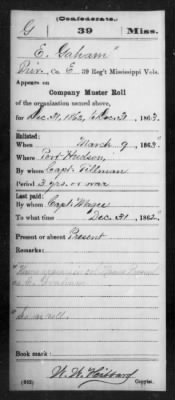 (Confederate.)
G 39 Miss.
E. Gaham"
Priv., Co. E, 39 Reg't Mississippi Vols.
Appears on
Company Muster Roll
of the organization named above,
for Dec. 31, 1862, to Dec. 31, 1863.
Enlisted:
When March 9, 1863"
Where Port Hudson,
By whom Capt. Tillman
Period 3 yrs. or war
Last paid:
By whom Capt.
To what time Dec. 31, 1862"
Present or absent Present
Remarks:
as
roll.
Book mark:
(642) Copyist.